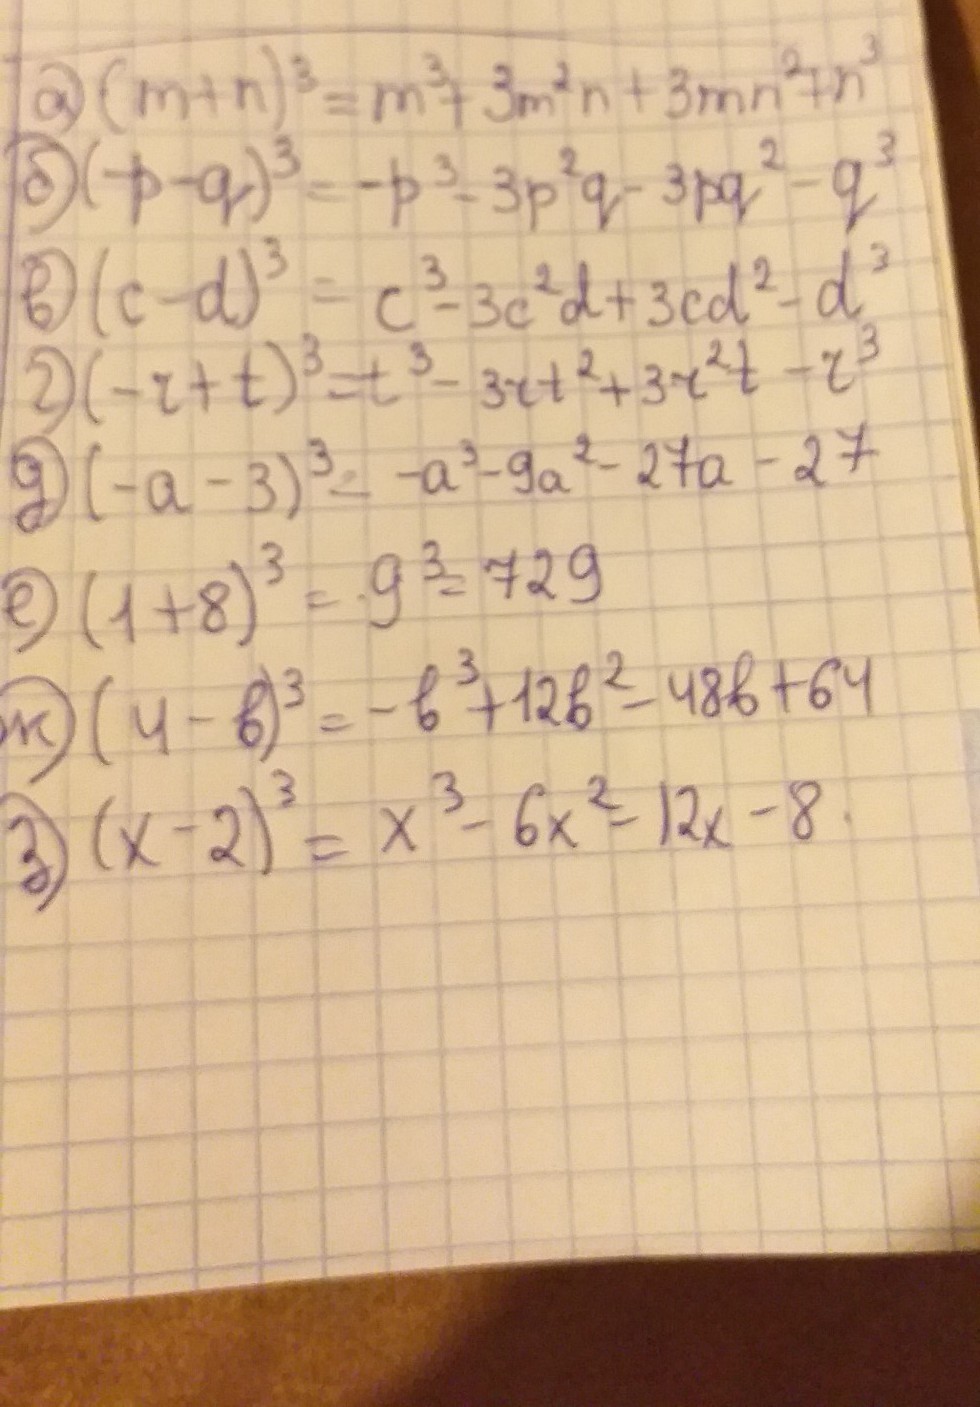 а) (m+n)³ = m³ + 3m²n + 3mn² + n³
б) (-p-q)³ = -p³ - 3p²q - 3pq² - q³
в) (c-d)³ = c³ - 3c²d + 3cd² - d³
г) (-r+t)³ = t³ - 3rt² + 3r²t - r³
д) (-a-3)³ = -a³ - 9a² - 27a - 27
е) (1+8)³ = 9³ = 729
ж) (4-b)³ = -b³ + 12b² - 48b + 64
з) (x-2)³ = x³ - 6x² - 12x - 8.